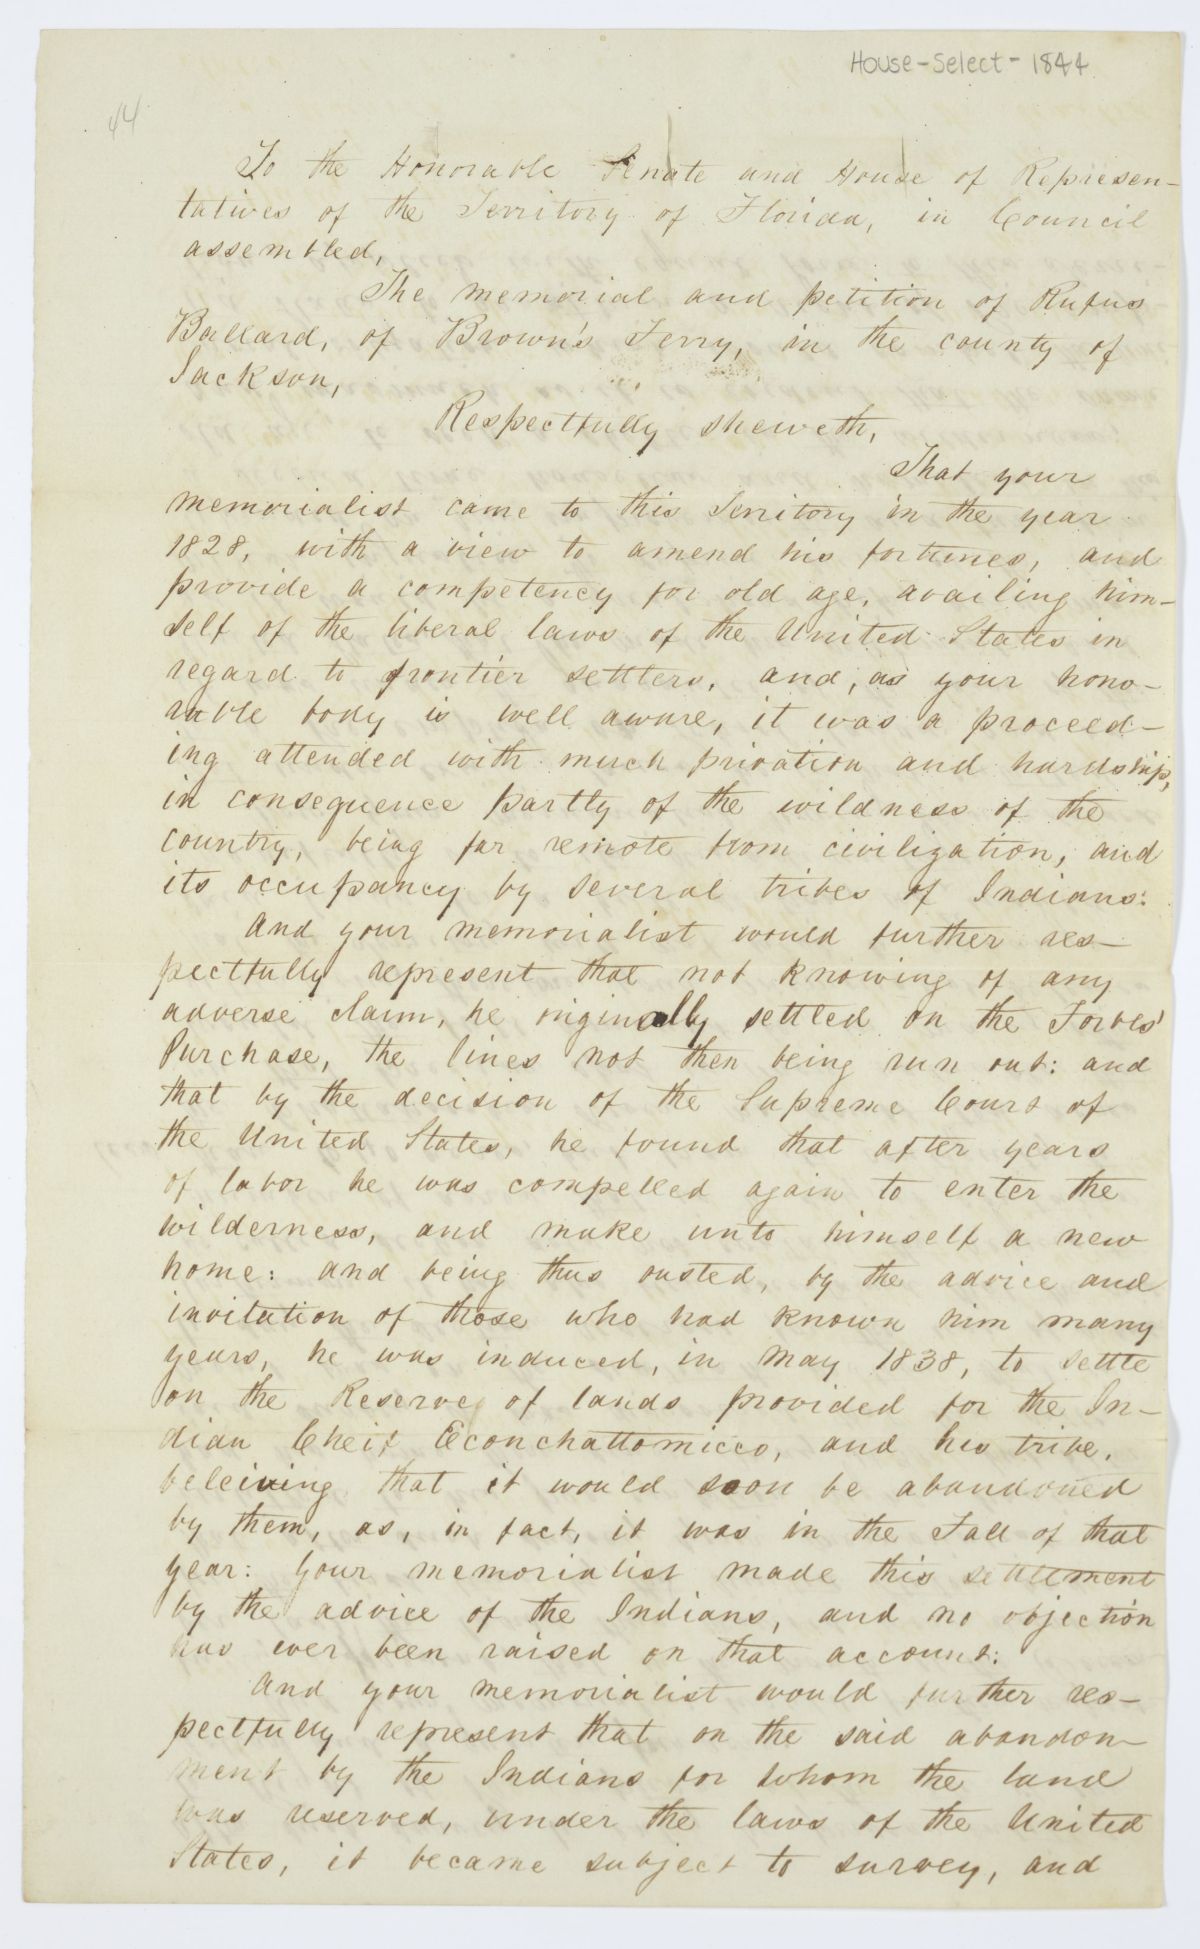 House-Select-1844
44
To the Honorable Senate and House of Represen-
tatives of the Territory of Florida, in Council
assembled,
The memorial and petition of Rufus
Ballard, of Brown's Ferry, in the county of
Jackson,
Respectfully sheweth,
That your
memorialist came to this Territory in the year
1828, with a view to amend his fortunes, and
provide a competency for old age, availing him-
self of the liberal laws of the United States in
regard to frontier settlers, and, as your hono-
rable body is well aware, it was a proceed-
ing attended with much privation and hardship,
in consequence partly of the wildness of the
country, being far remote from civilization, and
its occupancy by several tribes of Indians:
And your memorialist would further res-
pectfully represent that not knowing of any
adverse claim, he originally settled on the Forbes'
Purchase, the lines not then being run out: and
that by the decision of the Supreme Court of
the United States, he found that after years
of labor he was compelled again to enter the
wilderness, and make unto himself a new
home: and being thus ousted, by the advice and
invitation of those who had known him many
years, he was induced, in May 1838, to settle
on the Reserve of lands provided for the In-
dian Cheif Econchattomicco, and his tribe,
beleiving that it would soon be abandoned
by them, as, in fact, it was in the Fall of that
year: Your memorialist made this settlement
by the advice of the Indians, and no objection
has ever been raised on that account:
And your memorialist would further res-
pectfully represent that on the said abandon-
ment by the Indians for whom the land
was reserved, under the laws of the United
States, it became subject to survey, and